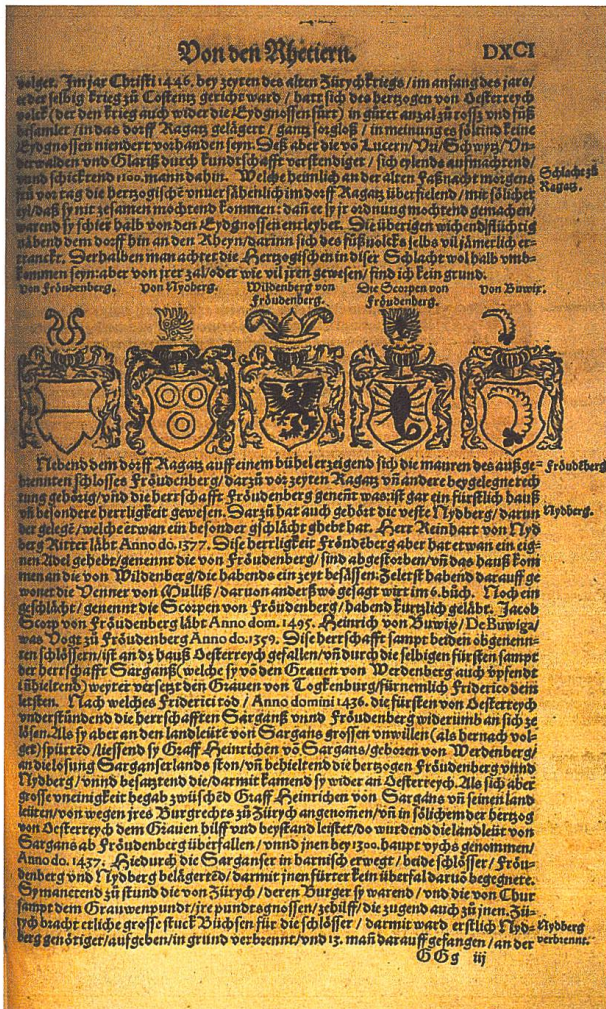 Von den Rhetiern. DXCI
volget. Im jar Christi 1446. bey zeyten des alten Zürychkriegs/im anfang des jars/
ee der selbig krieg zů Costentz gericht ward/hatt sich des hertzogen von Oesterreych
volck (der den krieg auch wider die Eydgnossen fůrt) in gůter anzal zů rossz vnd fůß
besamlet/in das dorff Ragatz gelägert/gantz sorgloß/in meinung es söltind keine
Eydgnossen niendert vorhanden seyn. Deß aber die võ Lucern/Vri/Schwytz/Vn-
derwalden vnd Glariß durch kundtschafft verstendiget/sich eylends aufmachtend/
vnnd schicktend 1100. mann dahin. Welche heimlich an der alten Faßnacht morgens
Schlacht zů
Ragatz.
frů vor tag die hertzogischẽ vnuersähenlich im dorff Ragatz überfielend/mit sölicher
eyl/daß sy nit zesamen mochtend kommen: dañ ee sy jr ordnung mochtend gemachen/
warend sy schier halb von den Eydgnossen entleybet. Die überigen wichend flüchtig
nähend dem dorff hin an den Rheyn/darinn sich des fůßvolcks selbs vil jämerlich er-
tranckt. Derhalben man achtet die Hertzogischen in diser Schlacht wol halb vmb-
kommen seyn: aber von jrer zal/oder wie vil jren gewesen/find ich kein grund.
von Fröudenberg. von Nydberg. Wildenberg von Fröudenberg. Die Scorpen von Fröudenberg. von Buwix.
Nebend dem dorff Ragatz auff einem bühel erzeigend sich die mauren des außge-
Fröudẽberg
brennten schlosses Fröudenberg/darzů vor zeyten Ragatz vñ andere beygelegne rech
tung gehörig/vnd die herrschafft Fröudenberg genent was: ist gar ein fürstlich hauß
vñ besondere herrligkeit gewesen. Darzů hat auch gehört die veste Nydberg/darun
Nydberg.
der gelegẽ/welche etwan ein besonder gschlächt ghebt hat. Herr Reinhart von Nyd
berg Ritter läbt Anno do. 1377. Dise herrligkeit Fröudẽberg aber hat etwan ein eig-
nen Adel gehebt/genennt die von Fröudenberg/sind abgestorben/vñ das hauß kom
men an die von Wildenberg/die habends ein zeyt besässen: Zeletst habend darauff ge
wonet die Venner von Mulliß/daruon anderßwo gesagt wirt im 6. bůch. Noch ein
geschlächt/genennt die Scorpen von Fröudenberg/habend kurtzlich geläbt. Jacob
Scorp von Fröudenberg läbt Anno dom. 1495. Heinrich von Buwix/De Buwiga/
was Vogt zů Fröudenberg Anno do. 1359. Dise herrschafft sampt beiden obgenenn-
ten schlössern/ist an dz hauß Oesterreych gefallen/vñ durch die selbigen fürsten sampt
der herrschafft Sarganß (welche sy võ den Grauen von Werdenberg auch vpfendt
inhieltend) weyter versetzt den Grauen von Togkenburg/fürnemlich Friderico dem
letsten. Nach welches Friderici tod/Anno domini 1436. die fürsten von Oesterreych
vnderstůndend die herrschafften Sarganß vnnd Fröudenberg widerumb an sich ze
lösen. Als sy aber an den landleütẽ von Sargans grossen vnwillen (als hernach vol-
get) spürtẽd/liessend sy Graff Heinrichen võ Sargans/geboren von Werdenberg/
an die losung Sarganserlands ston/vñ behieltend die hertzogen Fröudenberg vnnd
Nydberg/vnnd besatztend die/darmit kamend sy wider an Oesterreych. Als sich aber
grosse vneinigkeit begab zwüschẽd Graff Heinrichen von Sargans vñ seinen land
leüten/von wegen jres Burgrechts zů Zürych angenom̃en/vñ in sölichem der hertzog
von Oesterreych dem Grauen hilff vnd beystand leistet/do wurdend die landleüt von
Sargans ab Fröudenberg überfallen/vnnd jnen bey 1300. haupt vychs genommen/
Anno do. 1437. Hiedurch die Sarganser in harnisch erwegt/beide schlösser/Fröu-
denberg vnd Nydberg belägertẽd/darmit jnen fürter kein überfal daruo begegnete.
Sy manetend zů stund die von Zürych/deren Burger sy warend/vnd die von Chur
sampt dem Grauwenpundt/jre pundtsgnossen/zehilff/die zugend auch zů jnen. Zü-
rych bracht etliche grosse stuck Büchsen für die schlösser/darmit ward erstlich Nyd-
Nydberg
verbrennt.
berg genötiget/aufgeben/in grund verbrennt/vnd 13. mañ darauff gefangen/an der
GGg iij